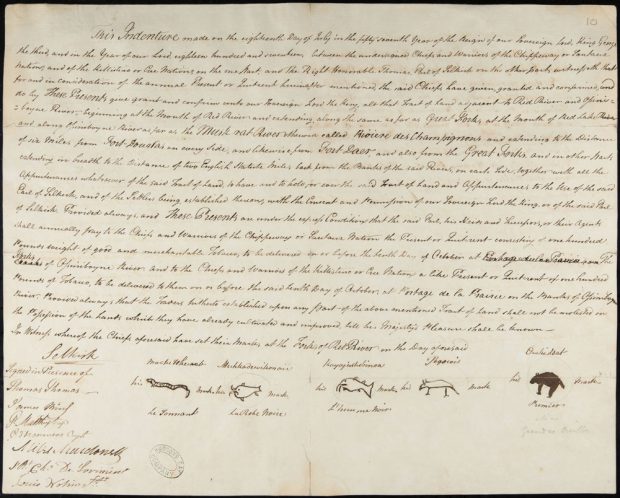 10
This Indenture made on the eighteenth Day of July in the fifty seventh Year of the Reign of our Sovereign Lord King George
the third, and in the Year of our Lord eighteen hundred and seventeen between the undersigned Chiefs and Warriors of the Chippeway or Saulteaux
Nation, and of the Killistine or Cree Nation on the one Part, and the Right Honorable Thomas Earl of Selkirk on the other Part, witnesseth that
for and in consideration of the annual Present or Quitrent hereinafter mentioned, the said Chiefs have given, granted and confirmed, and
do by These Presents give grant and confirm unto our Sovereign Lord the King, all that Tract of Land adjacent to Red River and Ossini-
boyne River, beginning at the Mouth of Red River and extending along the same as far as Great Forks, at the Mouth of Red Lake River
and along Ossiniboyne River as far as the Musk rat River otherwise called Rivière des Champignons and extending to the Distance
of six Miles from Fort Douglas on every Side, and likewise from Fort Daer, and also from the Great Forks and in other Parts
extending in breadth to the Distance of two English Statute Miles back from the Banks of the said Rivers, on each Side, together with all the
Appurtenances whatsoever of the said Tract of Land, to have and to hold, for ever the said Tract of Land and Appurtenances to the Use of the said
Earl of Selkirk, and of the Settlers being established thereon, with the Consent and Permission of our Sovereign Lord the King or of the said Earl
of Selkirk. Provided always, and These Presents are under the express Condition that the said Earl, his Heirs and Successors, or their Agents
shall annually pay to the Chiefs and Warriors of the Chippeway or Saulteaux Nation the Present or Quitrent consisting of one hundred
Pounds Weight of good and merchantable Tobacco, to be delivered on or before the tenth Day of October at the
Forks of Ossiniboyne River and to the Chiefs and Warriors of the Killistine or Cree Nation a like Present or Quitrent of one hundred
Pounds of Tobacco, to be delivered to them on or before the said tenth Day of October, at Portage de la Prairie on the Banks of Ossiniboyne
River. Provided always that the Traders hitherto established upon any Part of the above mentioned Tract of Land shall not be molested in
the Possession of the Lands which they have already cultivated and improved, till his Majesty's Pleasure shall be known
In Witness whereof the Chiefs aforesaid have set their Marks, at the Forks of Red River on the Day aforesaid
Selkirk
Signed in Presence of
Thomas Thomas
James Bird
F Matthey Capt
P D'Orsonnens Capt
Miles Macdonell
J Bte Chs De Lorimier
Louis Nolin
his Mark
Le Sonnant
his Mark
La Robe Noire
his Mark
L'homme Noir
his Mark
his Mark
Premier